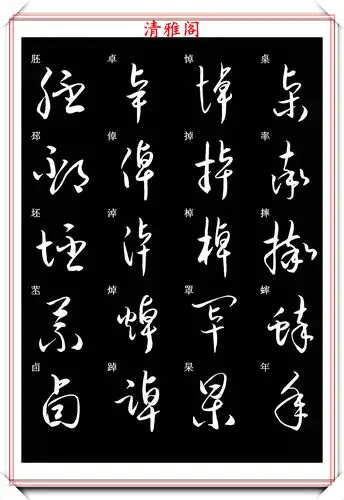 清雅阁
胚 卓 悼 桌
邳 倬 掉 率
坯 淖 棹 摔
苤 焯 罩 蟀
卤 踔 杲 年